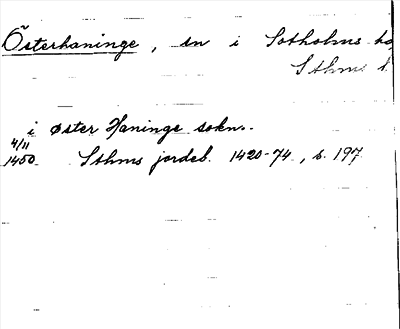 Österhaninge, sn i Sotholms hd
Sthms l.
i Øster Haninge sokn.
4/11
1450. Sthms jordeb. 1420-74, s. 197